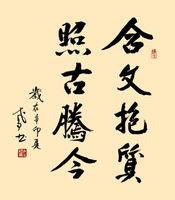 含文抱質
照古騰今
歲在辛卯夏